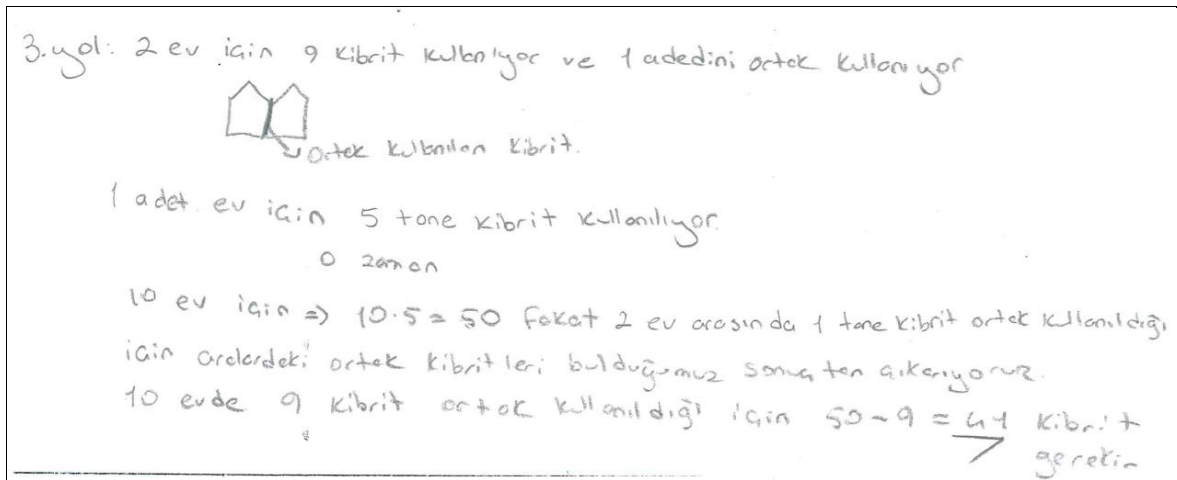 3.yol: 2 ev için 9 kibrit kullanıyor ve 1 adedini ortak kullanıyor
ortak kullanılan kibrit.
1 adet ev için 5 tane kibrit kullanılıyor.
O zaman
10 ev için => 10.5=50 fakat 2 ev arasında 1 tane kibrit ortak kullanıldığı
için aralardaki ortak kibritleri bulduğumuz sonuçtan çıkarıyoruz.
10 evde 9 kibrit ortak kullanıldığı için 50-9 = 41 kibrit
gerekir